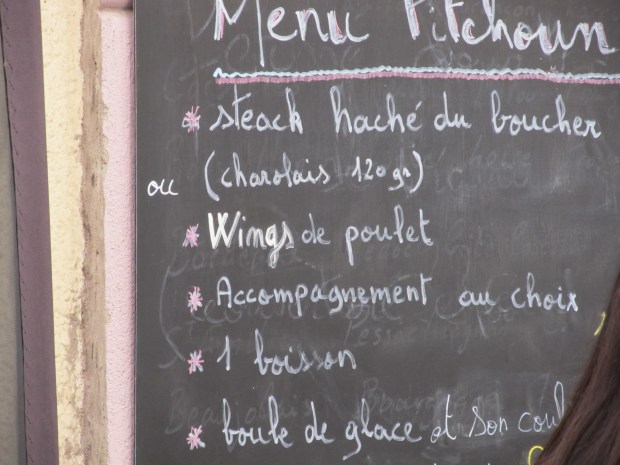 Menu Pitchoun
* steack haché du boucher
ou (charolais 120gr)
* Wings de poulet
* Accompagnement au choix
* 1 boisson
* boule de glace et son